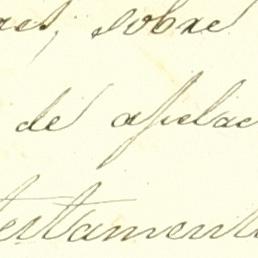 res, sobre
de apelac
testament